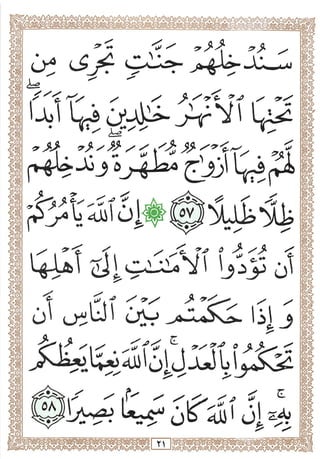 سَنُدْخِلُهُمْ جَنَّٰتٍ تَجْرِى مِن
تَحْتِهَا ٱلْأَنْهَٰرُ خَٰلِدِينَ فِيهَآ أَبَدًاۖ
لَّهُمْ فِيهَآ أَزْوَٰجٌ مُّطَهَّرَةٌۖ وَنُدْخِلُهُمْ
ظِلًّا ظَلِيلًا ٥٧ ۞ إِنَّ ٱللَّهَ يَأْمُرُكُمْ
أَن تُؤَدُّوا۟ ٱلْأَمَٰنَٰتِ إِلَىٰٓ أَهْلِهَا
وَإِذَا حَكَمْتُم بَيْنَ ٱلنَّاسِ أَن
تَحْكُمُوا۟ بِٱلْعَدْلِۚ إِنَّ ٱللَّهَ نِعِمَّا يَعِظُكُم
بِهِۦٓۗ إِنَّ ٱللَّهَ كَانَ سَمِيعًۢا بَصِيرًا ٥٨
٢١